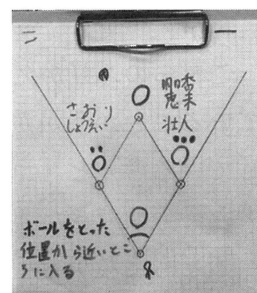 さおり
しょうえい
壮人
ボールをとった
位置から近いとこ
ろに入る